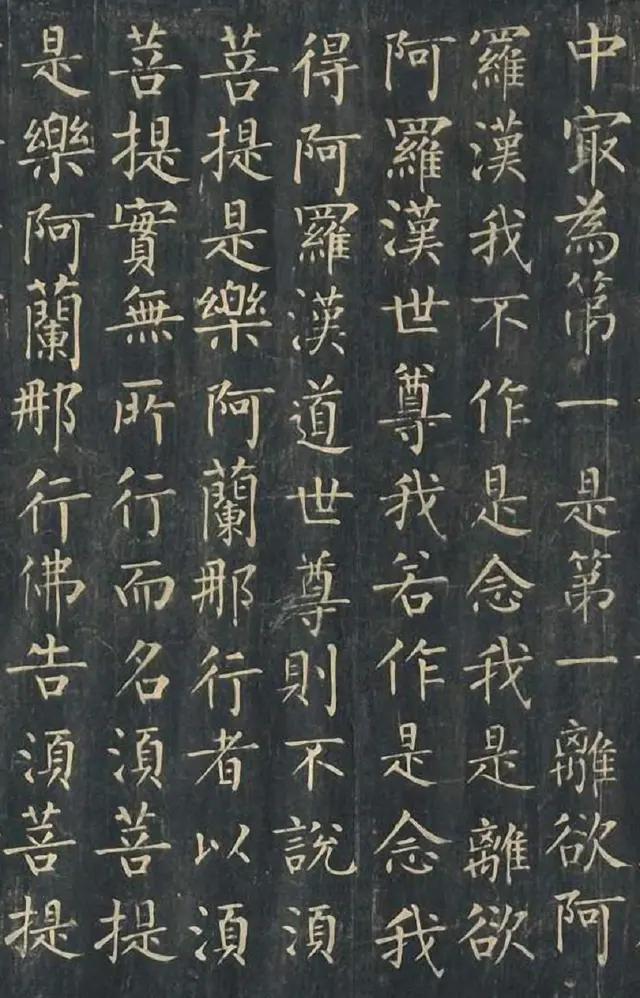 中㝡為第一是第一離欲阿
羅漢我不作是念我是離欲
阿羅漢世尊我若作是念我
得阿羅漢道世尊則不說湏
菩提是樂阿蘭那行者以湏
菩提實無所行而名湏菩提
是樂阿蘭那行佛告湏菩提